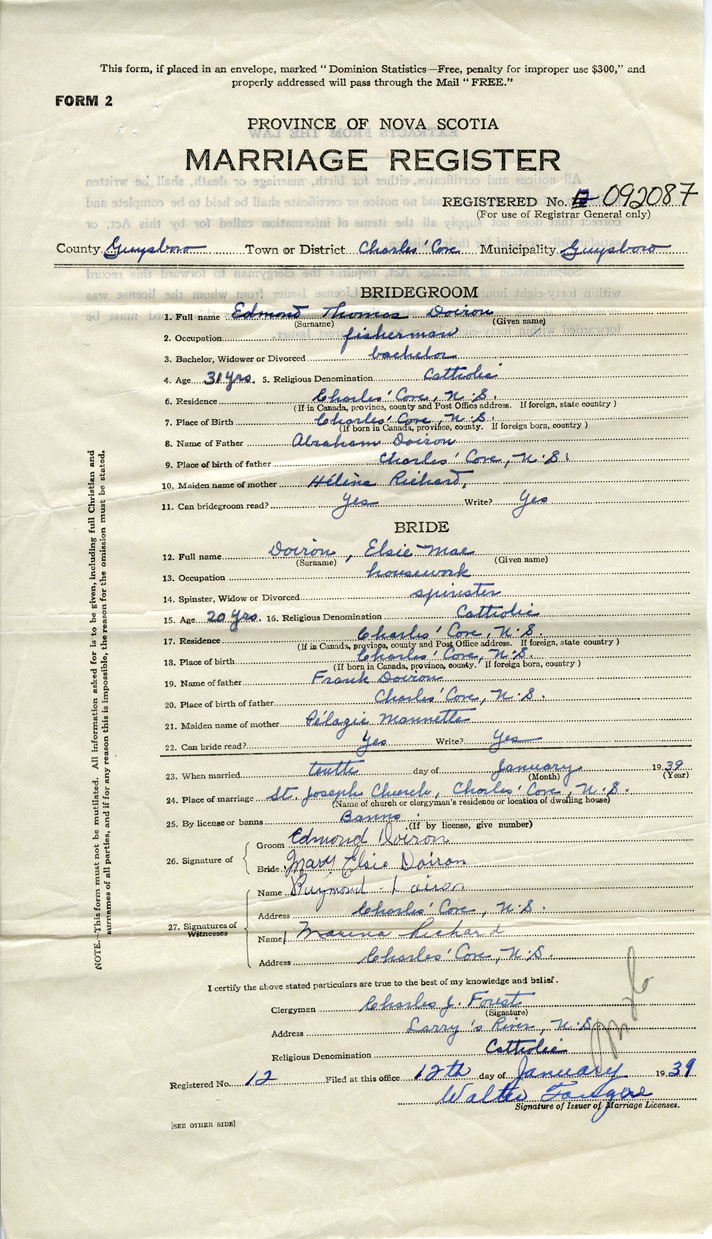 This form, if placed in an envelope, marked "Dominion Statistics—Free, penalty for improper use $300," and
properly addressed will pass through the Mail "FREE."
FORM 2
PROVINCE OF NOVA SCOTIA
MARRIAGE REGISTER
REGISTERED No. 092087
(For use of Registrar General only)
County Guysboro Town or District Charles' Cove Municipality Guysboro
BRIDEGROOM
1. Full name Edmond Thomas Doiron
(Surname) (Given name)
2. Occupation fisherman
3. Bachelor, Widower or Divorced bachelor
4. Age 31 yrs. 5. Religious Denomination Catholic
6. Residence Charles' Cove, N.S.
(If in Canada, province, county and Post Office address. If foreign, state country)
7. Place of Birth Charles' Cove, N.S.
(If born in Canada, province, county. If foreign born, country)
8. Name of Father Abraham Doiron
9. Place of birth of father Charles' Cove, N.S.
10. Maiden name of mother Hélèna Richard,
11. Can bridegroom read? Yes Write? Yes
BRIDE
12. Full name Doiron, Elsie Mae
(Surname) (Given name)
13. Occupation housework
14. Spinster, Widow or Divorced spinster
15. Age 20 yrs. 16. Religious Denomination Catholic
17. Residence Charles' Cove, N.S.
(If in Canada, province, county and Post Office address. If foreign, state country)
18. Place of birth Charles' Cove, N.S.
(If born in Canada, province, county. If foreign born, country)
19. Name of father Frank Doiron
20. Place of birth of father Charles' Cove, N.S.
21. Maiden name of mother Pélagie Mannette
22. Can bride read? Yes Write? Yes
23. When married tenth day of January 1939
(Month) (Year)
24. Place of marriage St. Joseph's Church, Charles' Cove, N.S.
(Name of church or clergyman's residence or location of dwelling house)
25. By license or banns Banns
(If by license, give number)
26. Signature of
Groom Edmond Doiron
Bride Mary Elsie Doiron
27. Signatures of Witnesses
Name Raymond Doiron
Address Charles' Cove, N.S.
Name Marina Richard
Address Charles' Cove, N.S.
I certify the above stated particulars are true to the best of my knowledge and belief.
Clergyman Charles J. Forest
(Signature)
Address Larry's River, N.S.
Religious Denomination Catholic
Registered No. 12 Filed at this office 12th day of January 1939
Walter Fougere
Signature of Issuer of Marriage Licenses.
[SEE OTHER SIDE]
NOTE.—This form must not be mutilated. All information asked for is to be given, including full Christian and
surnames of all parties, and if for any reason this is impossible, the reason for the omission must be stated.